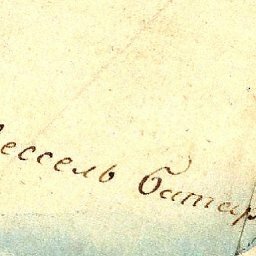 Вессель батар